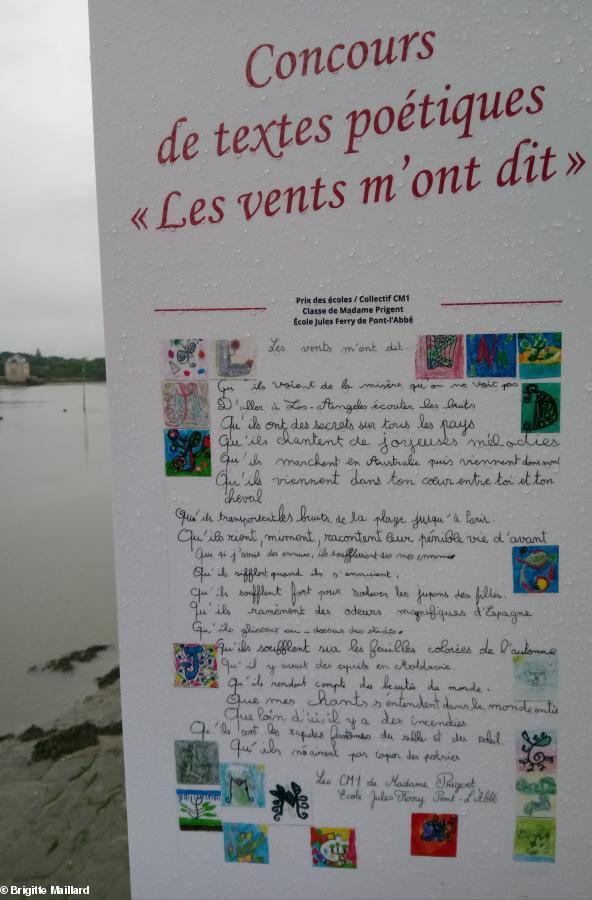 Concours
de textes poétiques
« Les vents m'ont dit »
Prix des écoles / Collectif CM1
Classe de Madame Prigent
École Jules Ferry de Pont-l'Abbé
Les vents m'ont dit...
Qu'ils voient de la misère qu'on ne voit pas
D'aller à Los-Angeles écouter les bruits
Qu'ils ont des secrets sur tous les pays
Qu'ils chantent de joyeuses mélodies
Qu'ils marchent en Australie puis viennent dans
Qu'ils viennent dans ton cœur entre toi et ton
cheval
Qu'ils transportent les bruits de la plage jusqu'à Paris.
Qu'ils rient, miment, racontent leur pénible vie d'avant
Que si j'avais des ennuis, ils souffleraient sur mes ennemis
Qu'ils sifflent quand ils s'ennuient.
Qu'ils soufflent fort pour soulever les jupons des filles.
Qu'ils ramènent des odeurs magnifiques d'Espagne
Qu'ils glissent au-dessous des
Qu'ils soufflent sur les feuilles colorées de l'automne
Qu'il y avait des esprits en Moldavie.
Qu'ils rendent compte des beautés du monde.
Que mes chants s'entendent dans le monde entier
Que loin d'ici, il y a des incendies
Qu'ils sont les rapides fantômes du sable et du soleil
Qu'ils n'aiment pas copier des poésies
Les CM1 de Madame Prigent
École Jules Ferry Pont-L'Abbé
© Brigitte Maillard